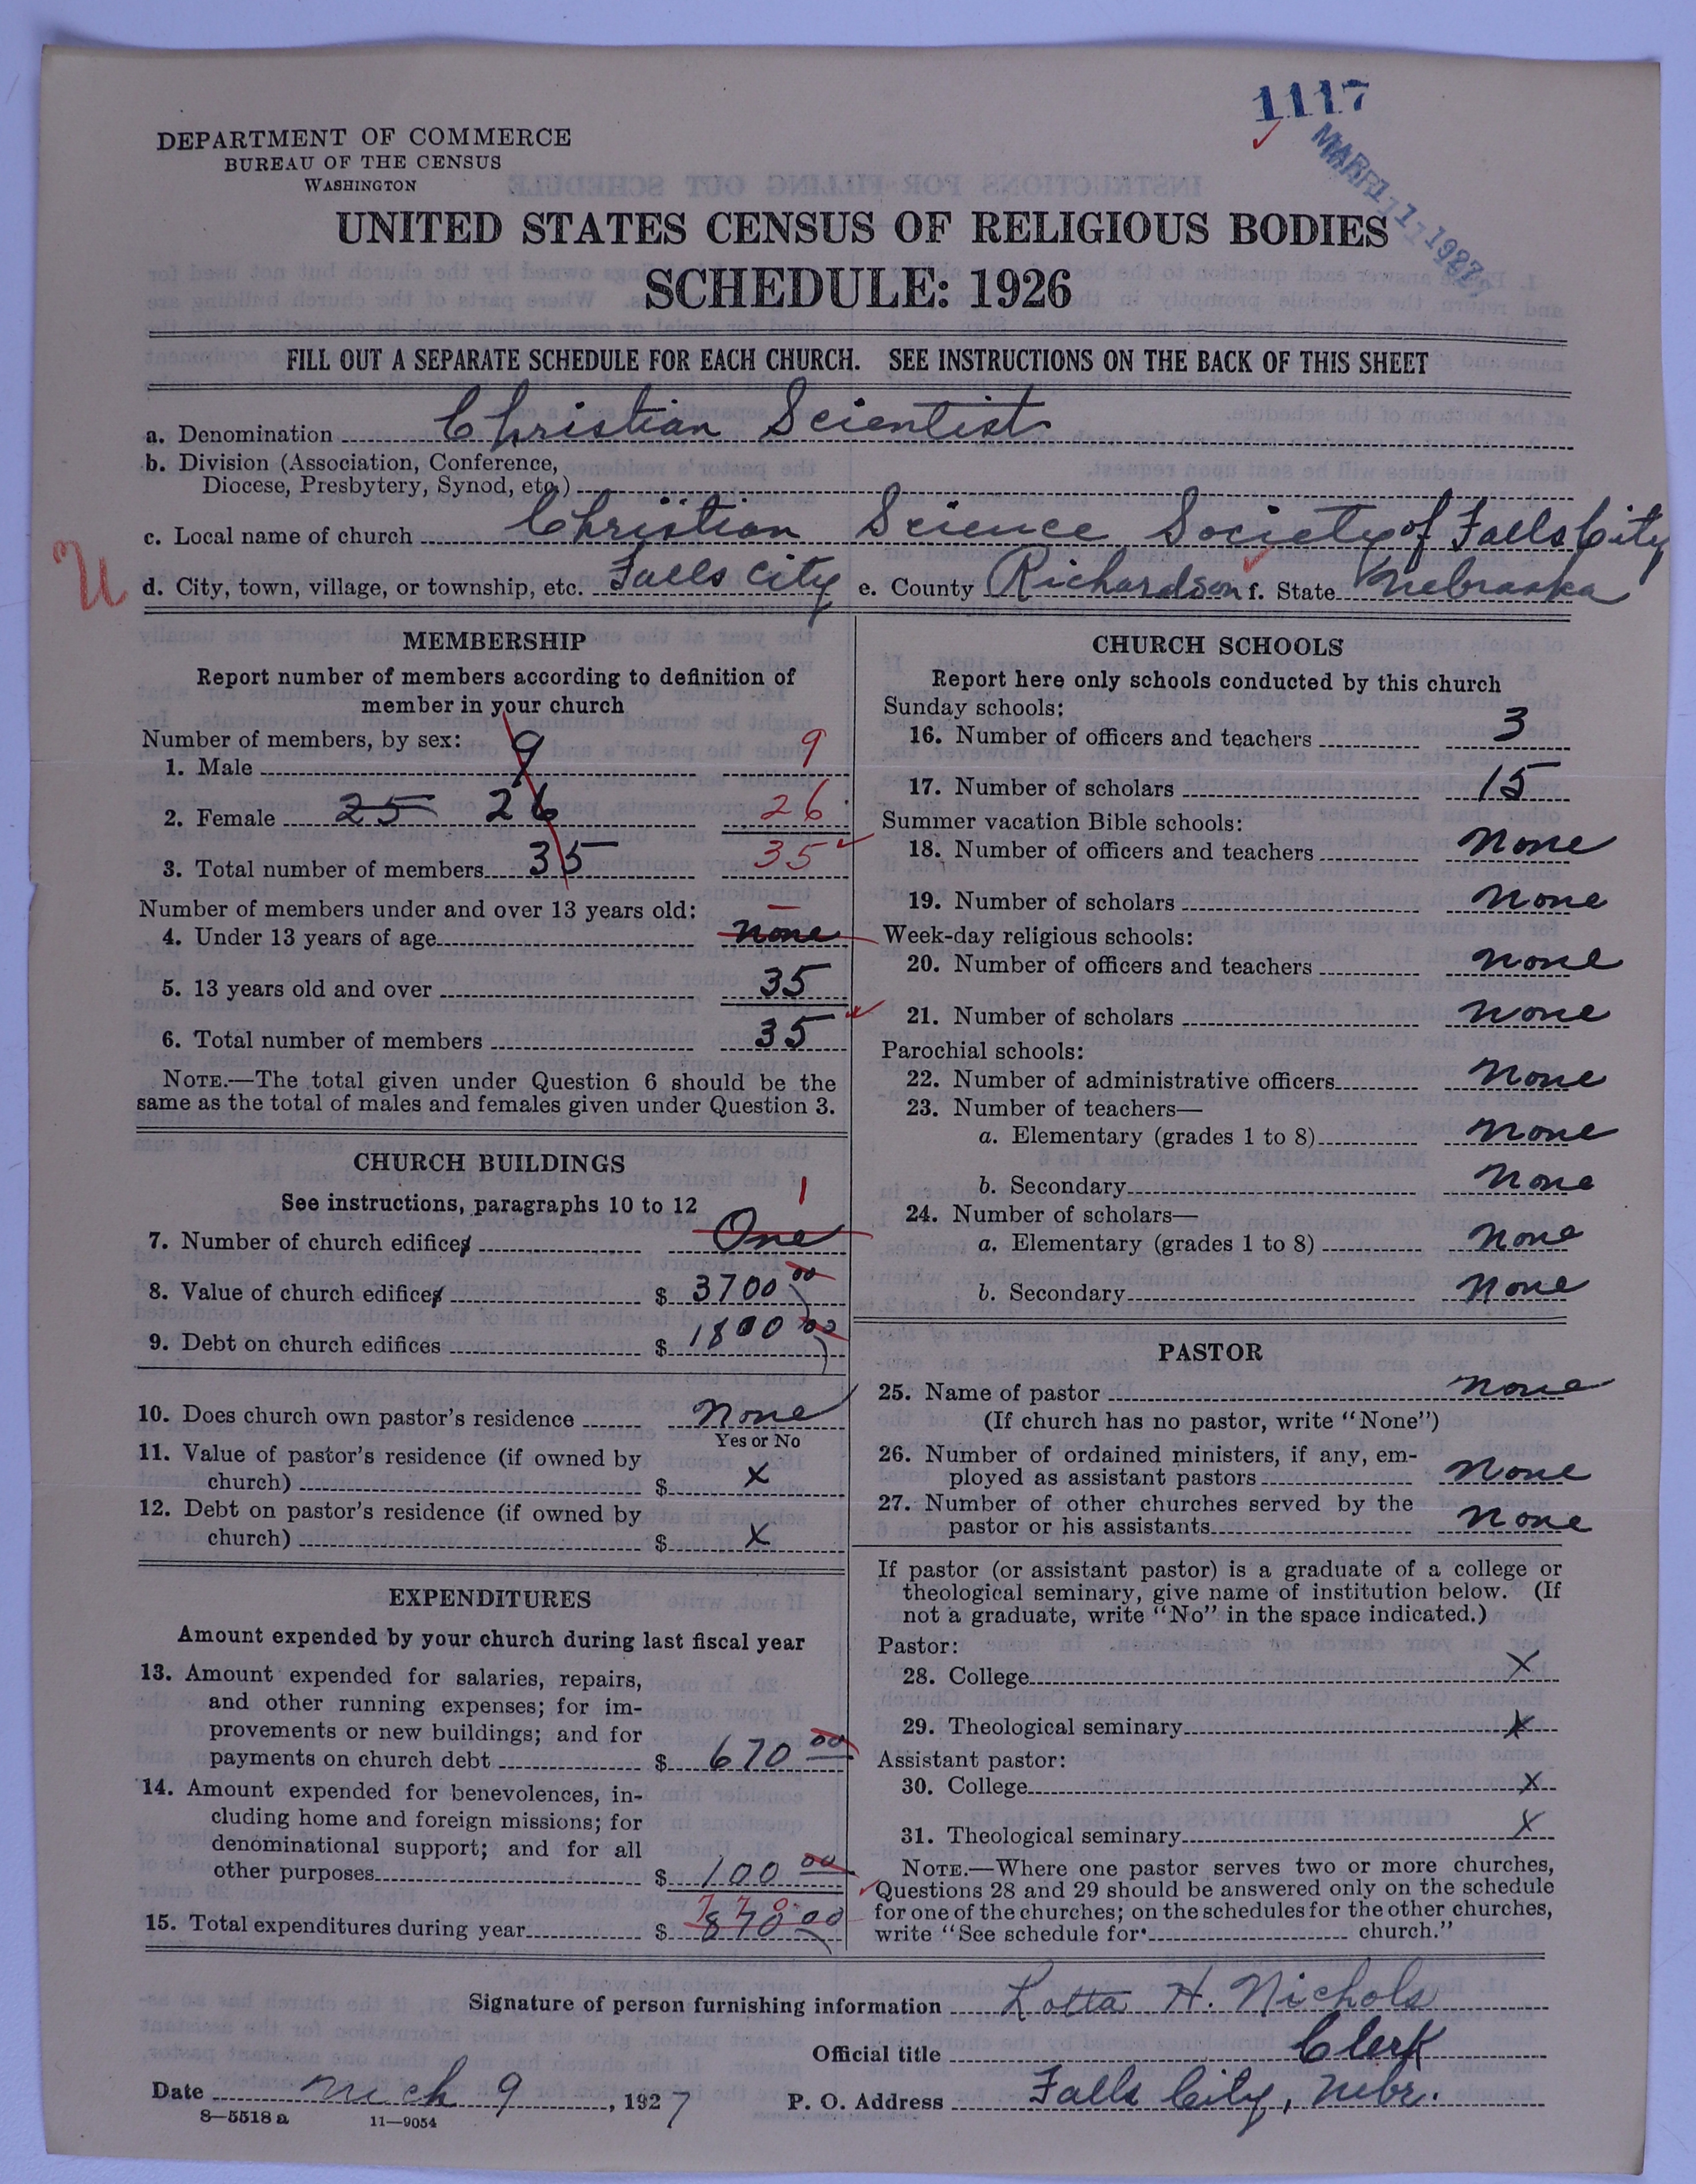 1117
MAR 11 1927
DEPARTMENT OF COMMERCE
BUREAU OF THE CENSUS
WASHINGTON
UNITED STATES CENSUS OF RELIGIOUS BODIES
SCHEDULE: 1926
FILL OUT A SEPARATE SCHEDULE FOR EACH CHURCH. SEE INSTRUCTIONS ON THE BACK OF THIS SHEET
a. Denomination Christian Scientist
b. Division (Association, Conference,
Diocese, Presbytery, Synod, etc.)
c. Local name of church Christian Science Society of Falls City
U
d. City, town, village, or township, etc. Falls City e. County Richardson f. State Nebraska
MEMBERSHIP
Report number of members according to definition of
member in your church
Number of members, by sex:
1. Male 9 9
2. Female 25 26 26
3. Total number of members 35 35
Number of members under and over 13 years old:
4. Under 13 years of age none
5. 13 years old and over 35
6. Total number of members 35
NOTE.—The total given under Question 6 should be the
same as the total of males and females given under Question 3.
CHURCH BUILDINGS
See instructions, paragraphs 10 to 12 1
7. Number of church edifices One
8. Value of church edifices $ 3700 00
9. Debt on church edifices $ 1800 00
10. Does church own pastor's residence None
Yes or No
11. Value of pastor's residence (if owned by
church) $ X
12. Debt on pastor's residence (if owned by
church) $ X
EXPENDITURES
Amount expended by your church during last fiscal year
13. Amount expended for salaries, repairs,
and other running expenses; for im-
provements or new buildings; and for
payments on church debt $ 670 00
14. Amount expended for benevolences, in-
cluding home and foreign missions; for
denominational support; and for all
other purposes $ 100 00
770
15. Total expenditures during year $ 870 00
CHURCH SCHOOLS
Report here only schools conducted by this church
Sunday schools:
16. Number of officers and teachers 3
17. Number of scholars 15
Summer vacation Bible schools:
18. Number of officers and teachers None
19. Number of scholars None
Week-day religious schools:
20. Number of officers and teachers None
21. Number of scholars None
Parochial schools:
22. Number of administrative officers None
23. Number of teachers—
a. Elementary (grades 1 to 8) None
b. Secondary None
24. Number of scholars—
a. Elementary (grades 1 to 8) None
b. Secondary None
PASTOR
25. Name of pastor None
(If church has no pastor, write "None")
26. Number of ordained ministers, if any, em-
ployed as assistant pastors None
27. Number of other churches served by the
pastor or his assistants None
If pastor (or assistant pastor) is a graduate of a college or
theological seminary, give name of institution below. (If
not a graduate, write "No" in the space indicated.)
Pastor:
28. College X
29. Theological seminary X
Assistant pastor:
30. College X
31. Theological seminary X
NOTE.—Where one pastor serves two or more churches,
Questions 28 and 29 should be answered only on the schedule
for one of the churches; on the schedules for the other churches,
write "See schedule for church."
Signature of person furnishing information Lotta H. Nichols
Official title Clerk
Date Mch 9, 1927 P. O. Address Falls City, Nebr.
8—5518 a 11—9054